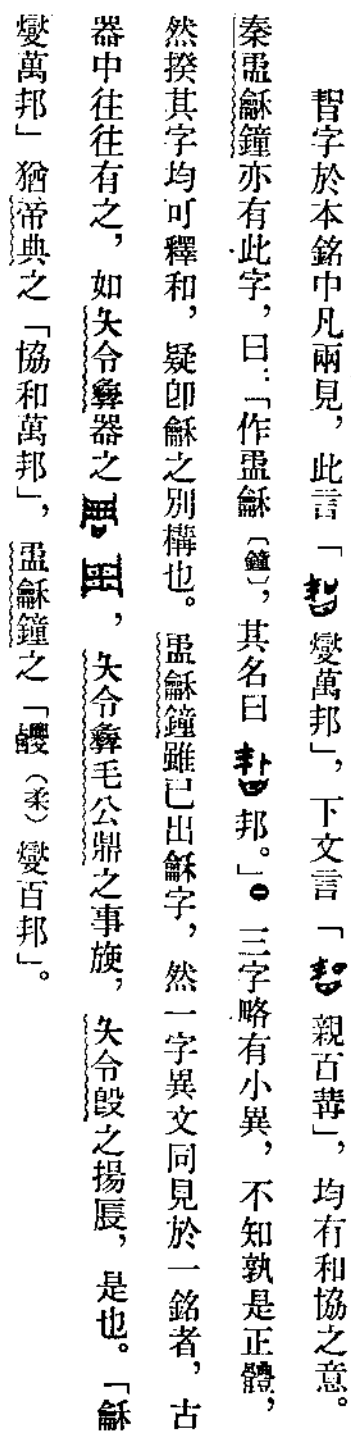 㬜字於本銘中凡兩見，此言「燮萬邦」，下文言「親百冓」，均有和協之意。
秦盄龢鐘亦有此字，曰：「作盄龢〔鐘〕，其名曰邦。」三字略有小異，不知孰是正體，
然揆其字均可釋和，疑卽龢之別構也。盄龢鐘雖已出龢字，然一字異文同見於一銘者，古
器中往往有之，如夨令彝器之，夨令彝毛公鼎之事旋，夨令𣪘之揚𢊁，是也。「龢
燮萬邦」猶帝典之「協和萬邦」，盄龢鐘之「（柔）燮百邦」。